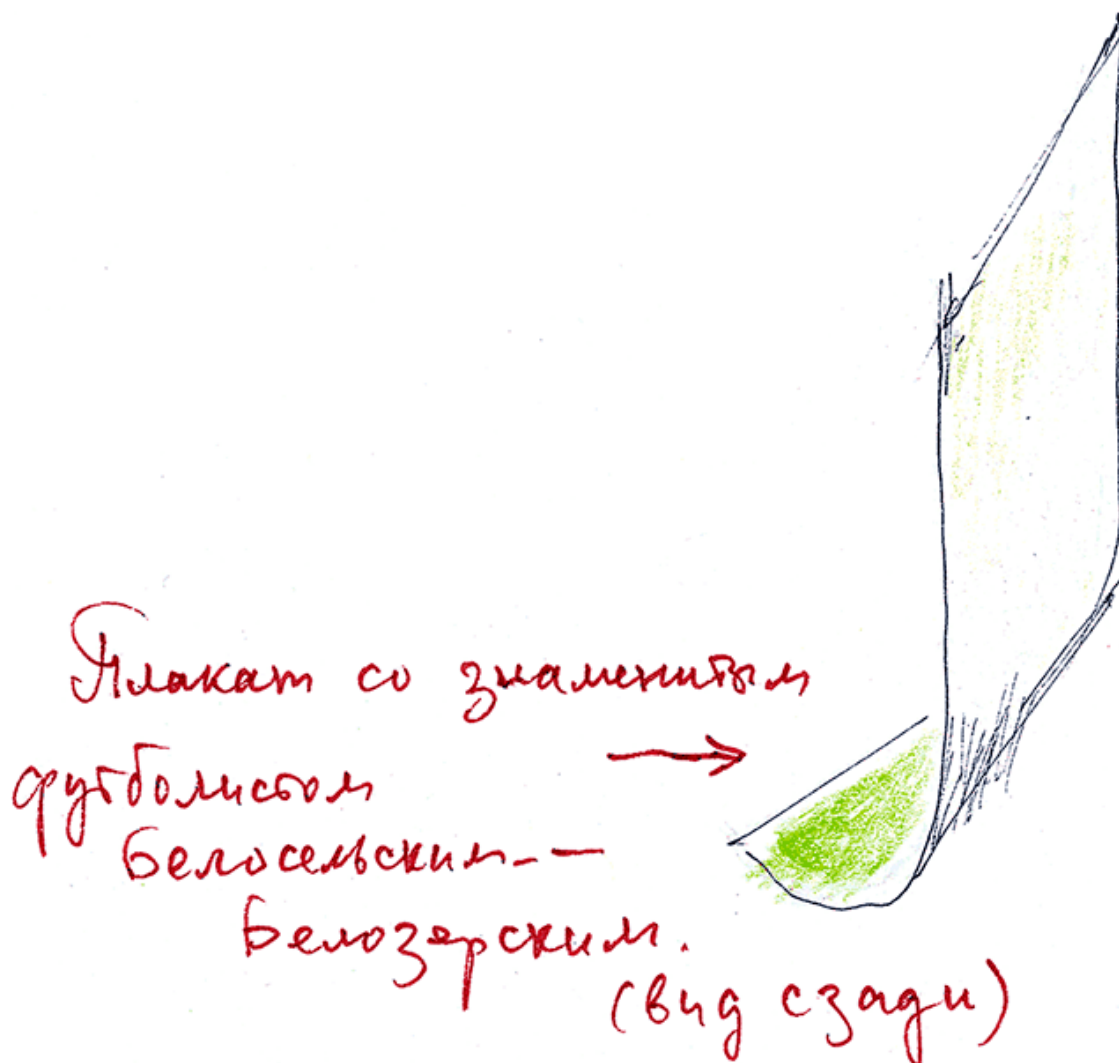 Плакат со знаменитым
футболистом
Белосельским-
Белозерским.
(вид сзади)